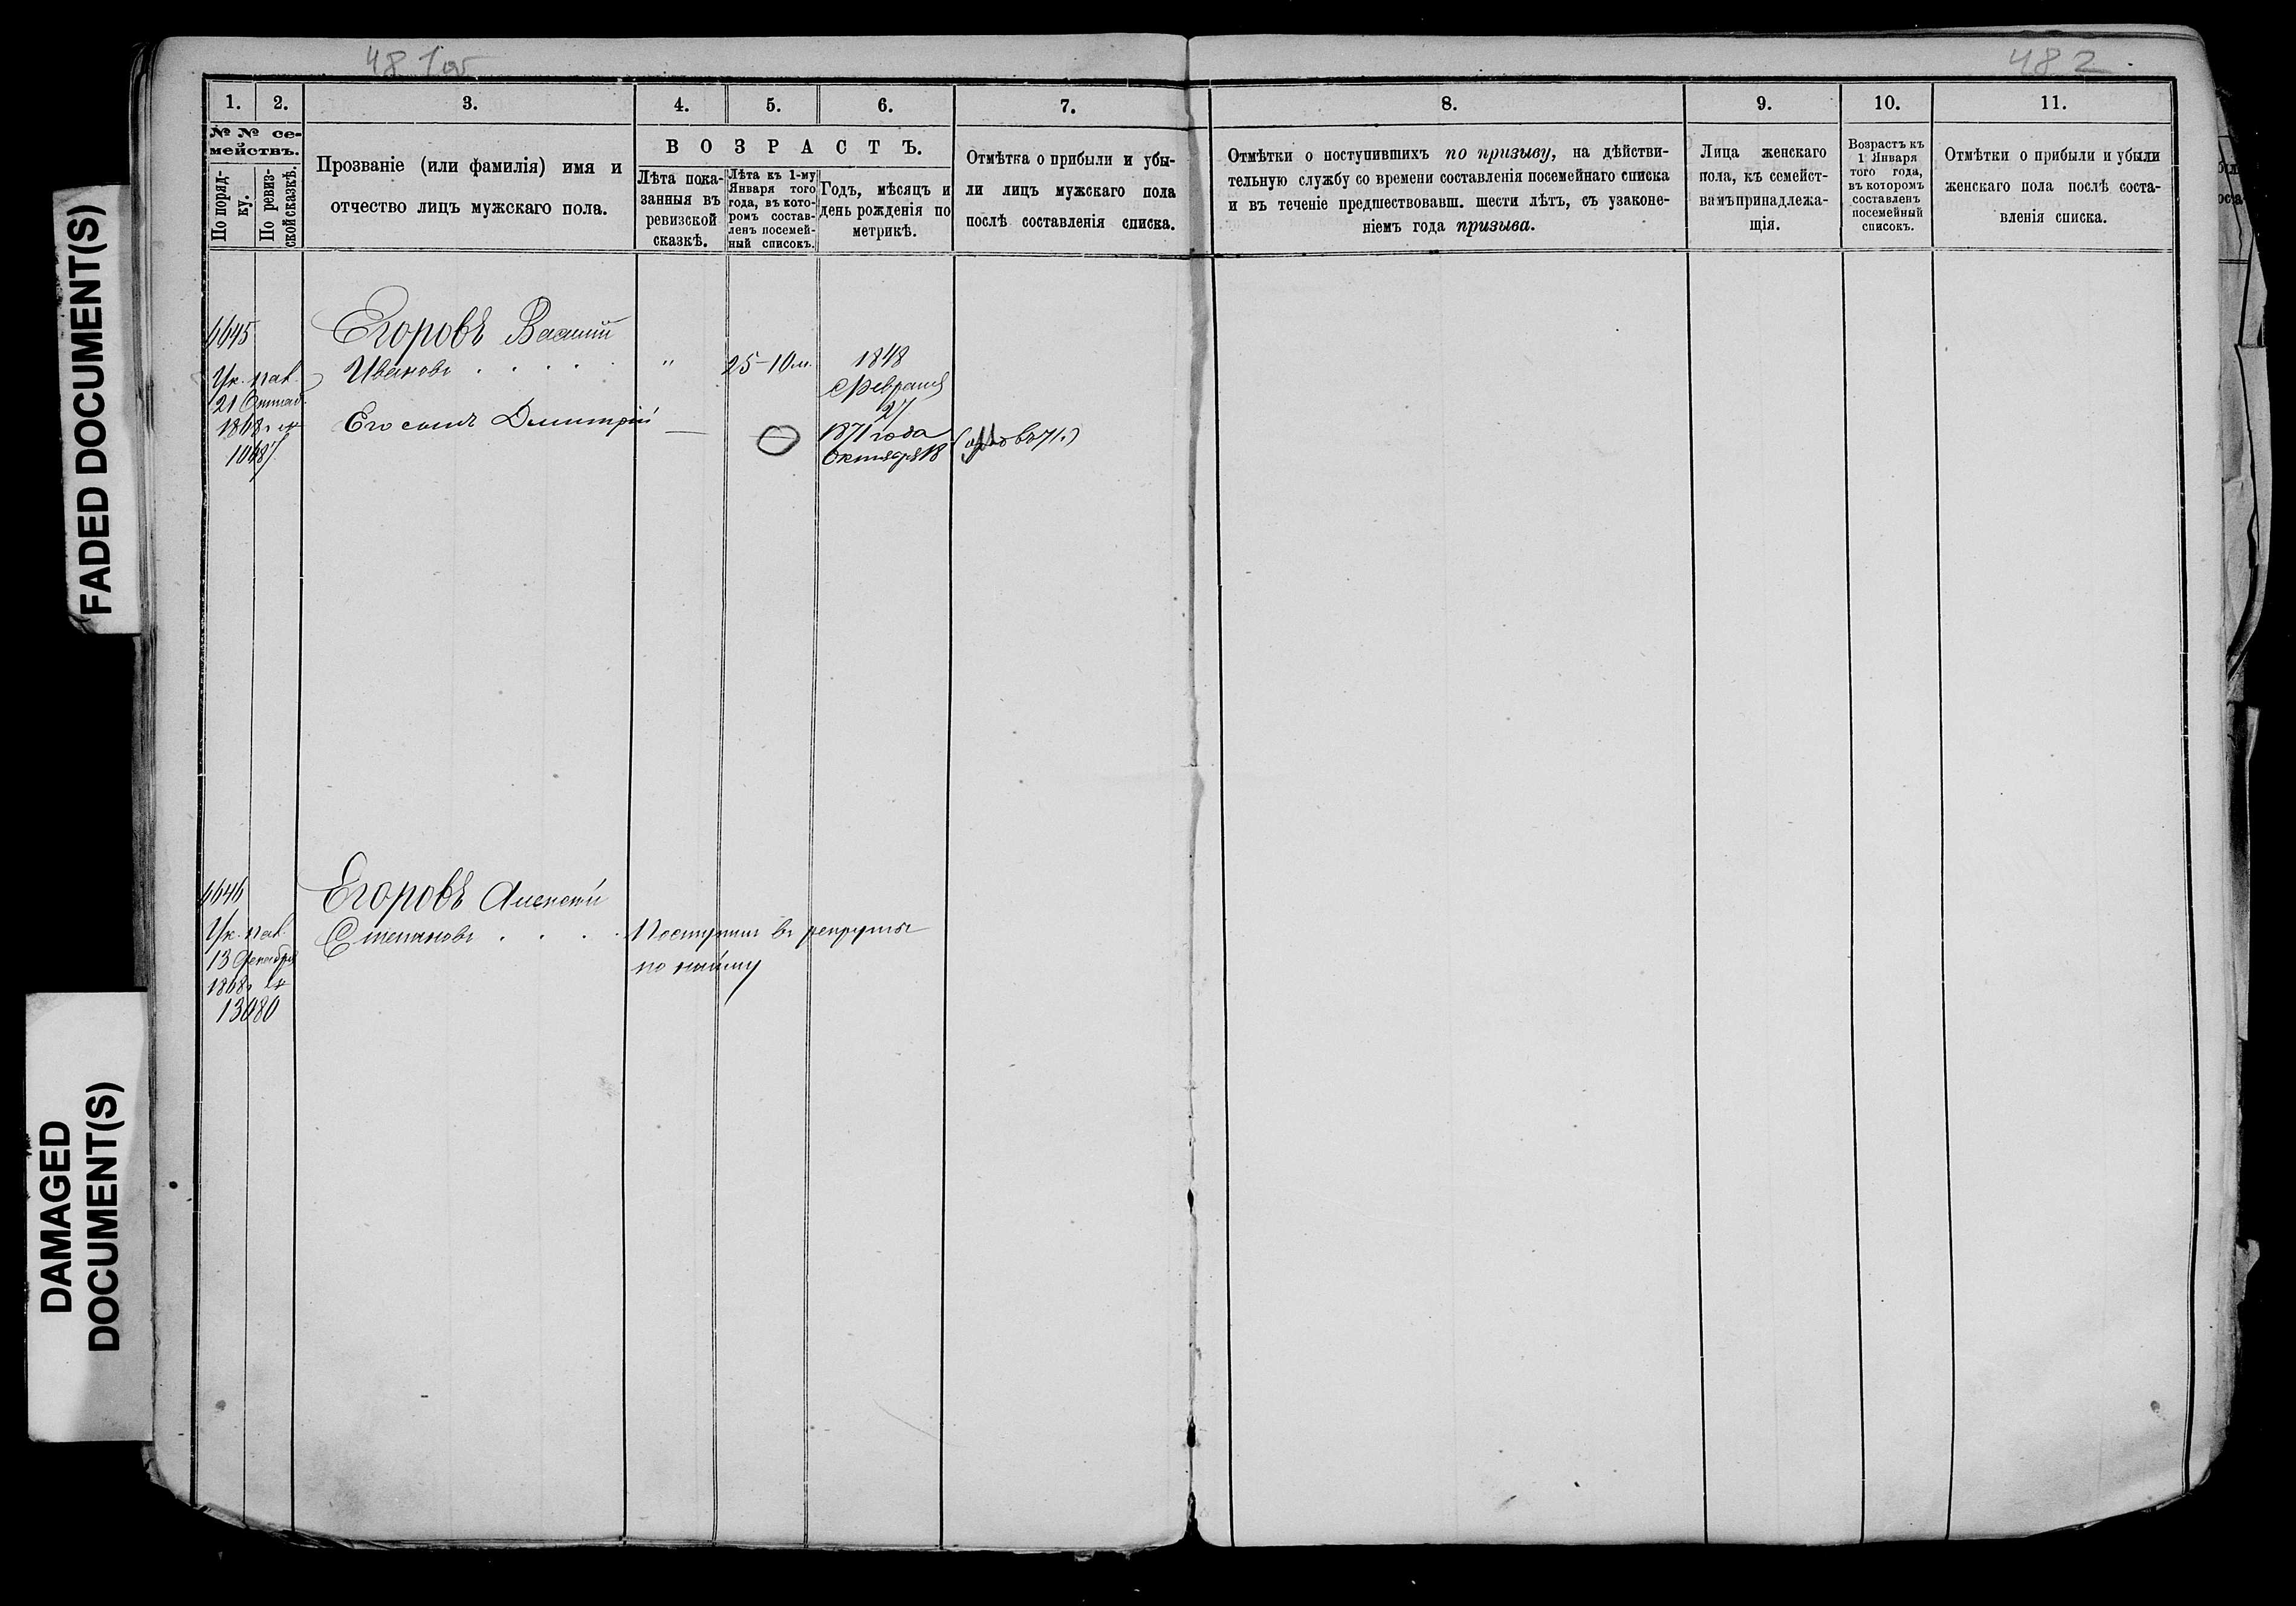 481об
482.
FADED DOCUMENT(S)
DAMAGED
DOCUMENT(S)
1.
2.
3.
4.
5.
6.
7.
8.
9.
10.
11.
№ № се-
мействъ.
По поряд-
ку.
По ревиз-
ской сказкѣ.
Прозваніе (или фамилія) имя и
отчество лицъ мужскаго пола.
ВОЗРАСТЪ.
Лѣта пока-
занныя въ
ревизской
сказкѣ.
Лѣта къ 1-му
Января того
года, въ кото-
ромъ состав-
ленъ посемей-
ный списокъ.
Годъ, мѣсяцъ и
день рожденія по
метрикѣ.
Отмѣтка о прибыли и убы-
ли лицъ мужскаго пола
послѣ составленія списка.
Отмѣтки о поступившихъ по призыву, на дѣйстви-
тельную службу со времени составленія посемейнаго списка
и въ теченіе предшествовавш. шести лѣтъ, съ узаконе-
ніемъ года призыва.
Лица женскаго
пола, къ семейст-
вамъ принадлежа-
щія.
Возрастъ къ
1 Января
того года,
въ которомъ
составленъ
посемейный
списокъ.
Отмѣтки о прибыли и убыли
женскаго пола послѣ соста-
вленія списка.
6645
Ук. пал.
21 Октяб.
1868г №
10487
Егоровъ Василій
Ивановъ . . . . .
"
25–10м.
1848
Февраля
27
Его сынъ Дмитрій
—
1871 года
Октября 18
6646
Ук. пал.
13 Декабря
1868г №
13080
Егоровъ Алексѣй
Степановъ . . . .
Поступилъ въ рекруты
по найму